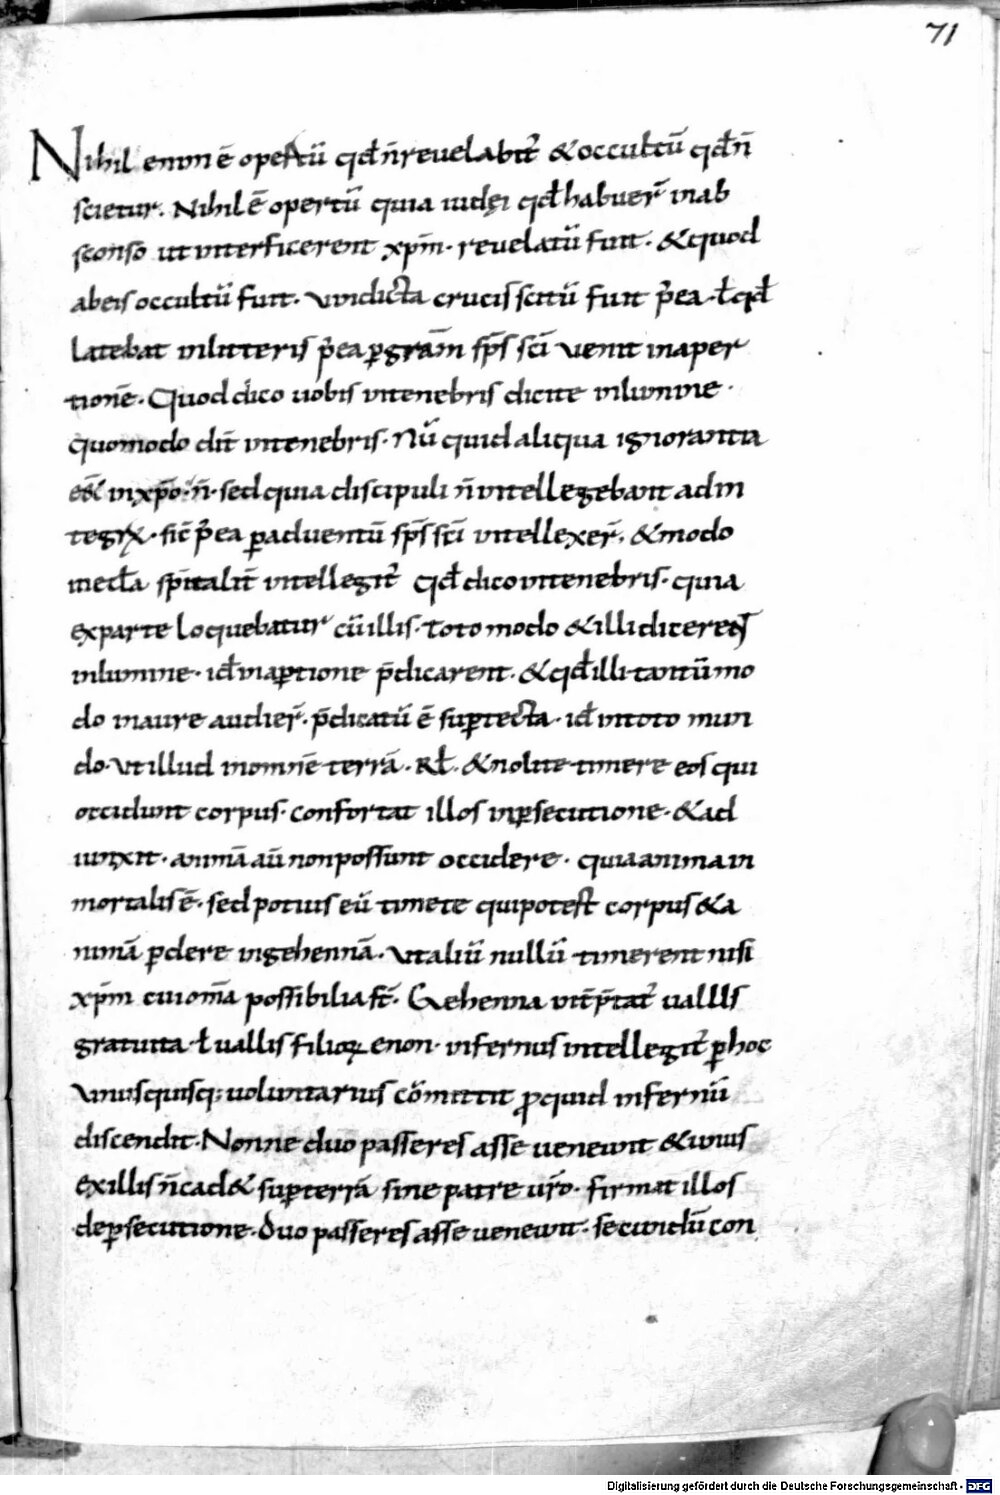 71
Nihil enim ē opertū qđ n̄ reuelabit᷑ & occultū qđ n̄
scietur. Nihil ē opertū quia iudęi qđ habuer̄ in ab
sconso ut interficerent xpm̄. reuelatū fuit. & quod
ab eis occultū fuit. uindicta crucis scitū fuit p̄ea. ł qđ
latebat in litteris p̄ea ꝑ gram̄ sp̄s sc̄i uenit in aper
tionē. Quod dico uobis in tenebris dicite in lumine.
quomodo dix̄ in tenebris. Nū quid aliqua ignorantia
e&̄ in xp̄o. n̄. sed quia discipuli n̄ intellegebant ad in
tegrū. sic̄ p̄ea ꝑ aduentū sp̄s sc̄i intellexer̄. & modo
inecl̄a sp̄italit̄ intellegit᷑ qđ dico in tenebris. quia
ex parte loquebatur cū illis. toto modo & illi dicerent
in lumine. id̄ in aꝑtione p̄dicarent. & qđ illi tantū mo
do in aure audier̄. p̄dicatū ē suꝑ tecta. id̄ in toto mun
do. ut illud in omnē terrā. Rł. & nolite timere eos qui
occidunt corpus. confortat illos in ꝑsecutione. & ad
iunxit. animā aū non possunt occidere. quia anima in
mortalis ē. sed potius eū timete qui potest corpus & a
nimā ꝑdere in gehennā. ut aliū nullū timerent nisi
xp̄m cui om̄a possibilia s̄t. Gehenna int̄p̄tat᷑ uallis
gratuita. ł uallis filioꝝ enon. infernus intellegit᷑ ꝑ hoc
unusquisq; uoluntarius cōmittit ꝓ quid in infernū
discendit. Nonne duo passeres asse ueneunt & unus
ex illis n̄ cad& suꝑ terrā sine patre ur̄o. firmat illos
de ꝑsecutione. Duo passeres asse ueneunt. secundū con
Digitalisierung gefördert durch die Deutsche Forschungsgemeinschaft - DFG